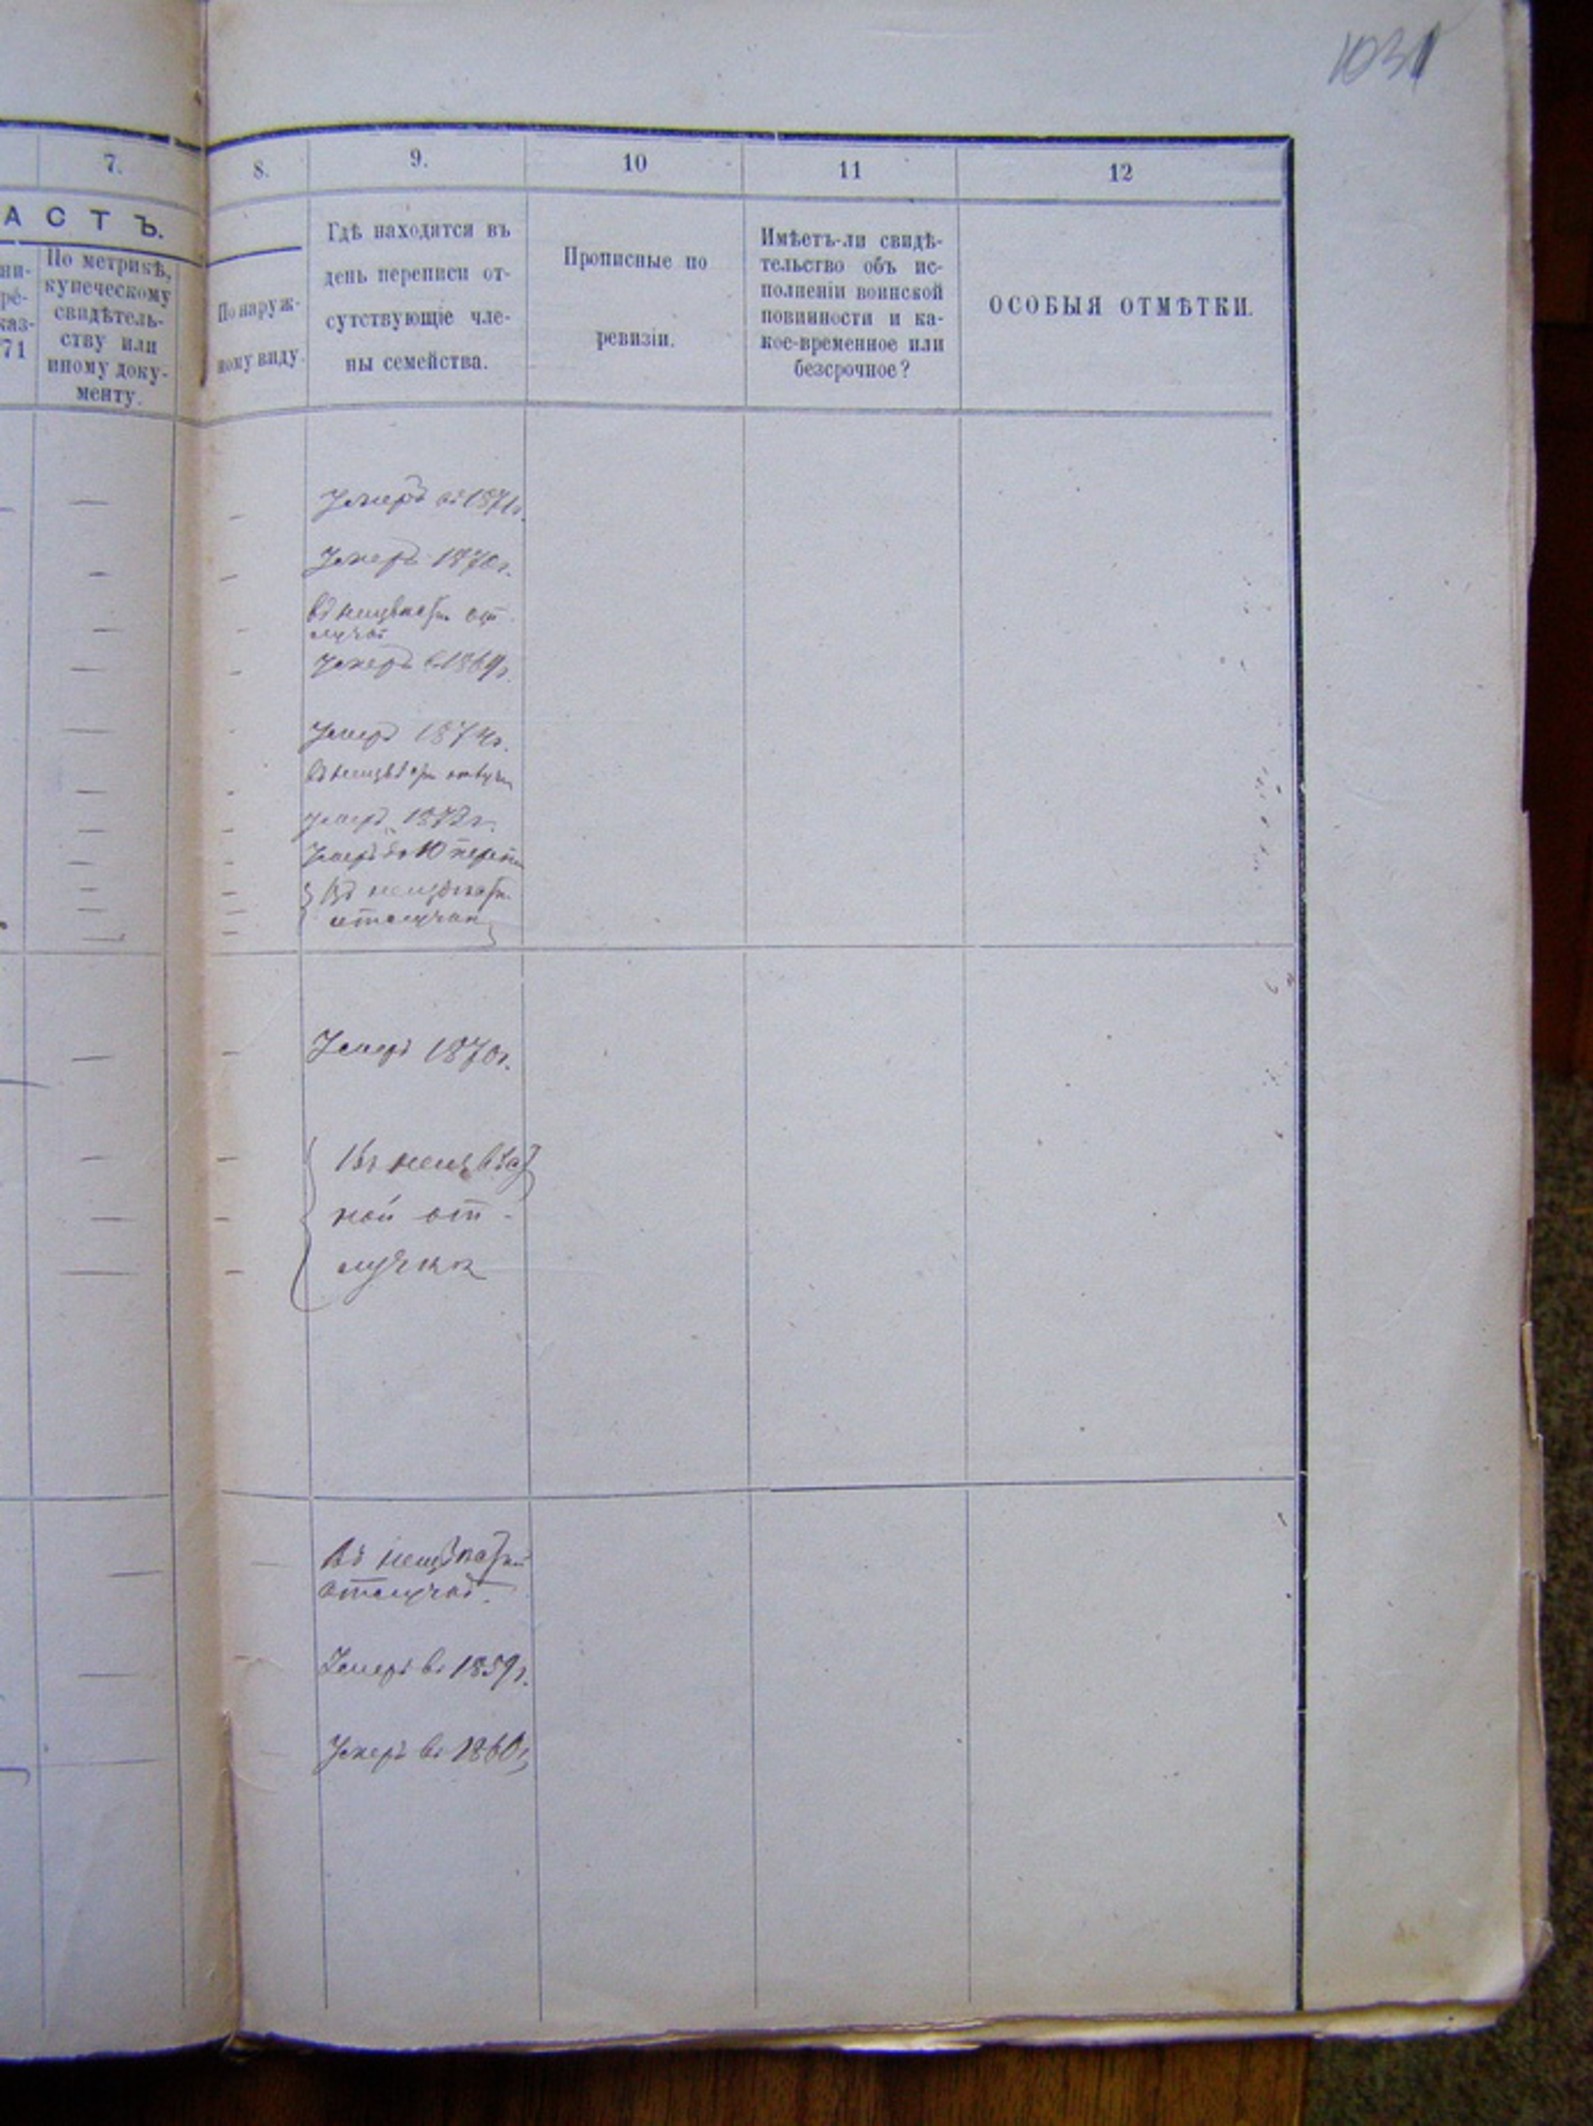 1031
7.
8.
9.
10
11
12
АСТЪ.
По метрикѣ,
купеческому
свидѣтель-
ству или
иному доку-
менту.
ни-
ре-
каз-
71
По наруж-
ному виду.
Гдѣ находятся въ
день переписи от-
сутствующіе чле-
ны семейства.
Прописные по
ревизіи.
Имѣетъ-ли свидѣ-
тельство объ ис-
полненіи воинской
повинности и ка-
кое-временное или
безсрочное?
ОСОБЫЯ ОТМѢТКИ.
Умеръ въ 1871г.
Умеръ 1870г.
въ неизвѣстн. от-
лучкѣ
Умеръ в 1869г.
Умеръ 1874г.
въ неизвѣстн отлучк
умеръ 1873г.
Умеръ до 10 переп
Въ неизвѣстн.
отлучки
Умеръ 1870г.
Въ неизвѣст
ной от-
лучки
Въ неизвѣстной
отлучкѣ.
Умеръ въ 1859г.
Умеръ въ 1860г.